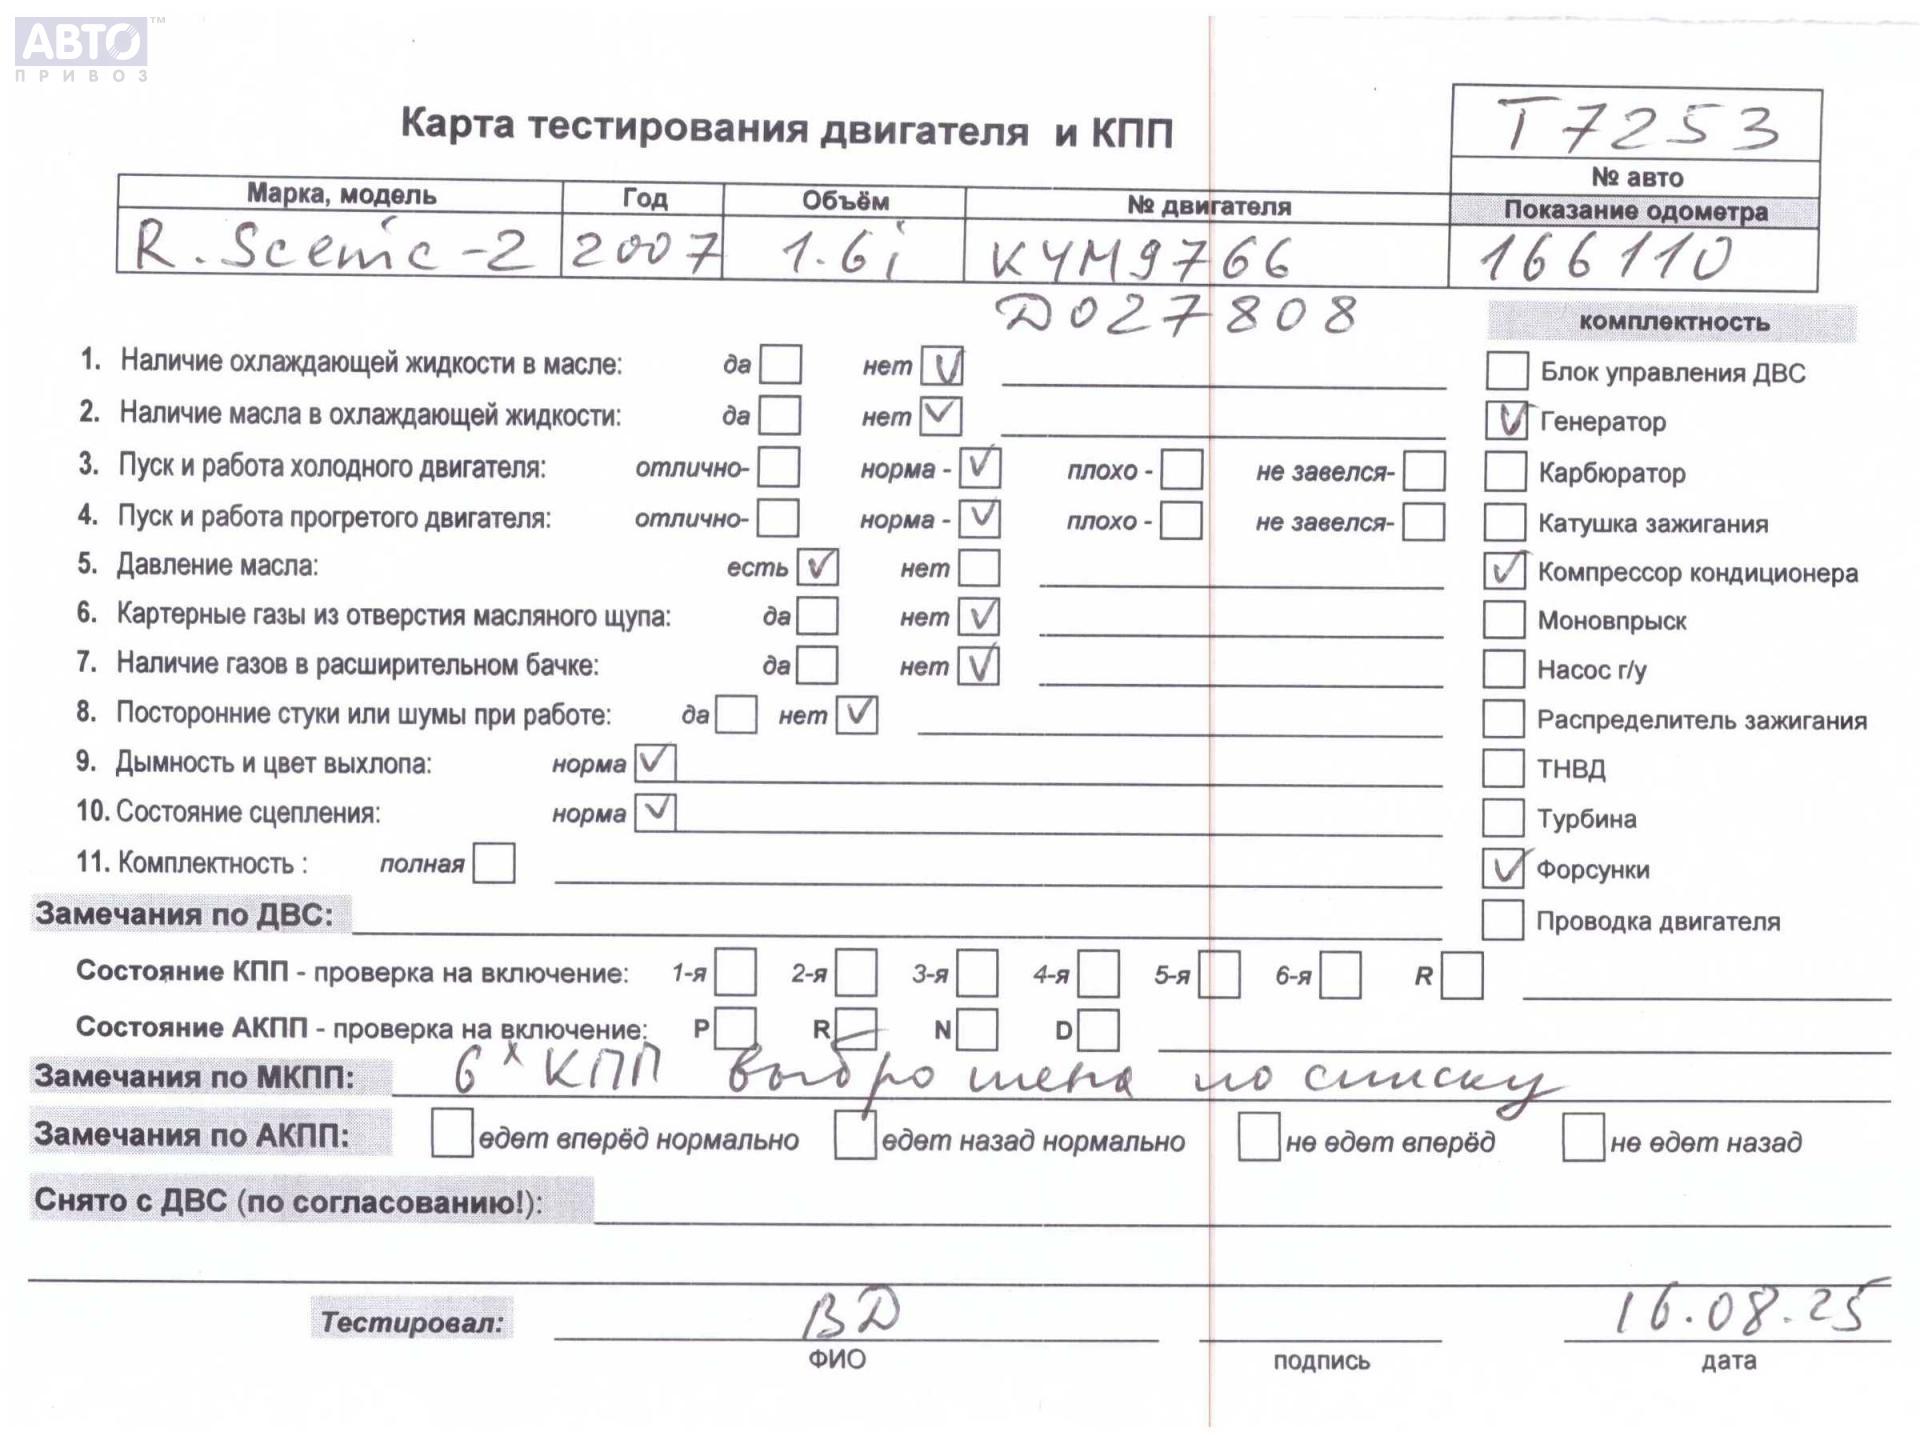 АВТО™
ПРИВОЗ
Карта тестирования двигателя и КПП
T7253
№ авто
Марка, модель Год Объём № двигателя Показание одометра
R. Scenic-2 2007 1.6i K4M9766 166110
D027808
комплектность
1. Наличие охлаждающей жидкости в масле: да нет V
Блок управления ДВС
2. Наличие масла в охлаждающей жидкости: да нет V
V Генератор
3. Пуск и работа холодного двигателя: отлично- норма - V плохо - не завелся-
Карбюратор
4. Пуск и работа прогретого двигателя: отлично- норма - V плохо - не завелся-
Катушка зажигания
5. Давление масла: есть V нет
V Компрессор кондиционера
6. Картерные газы из отверстия масляного щупа: да нет V
Моновпрыск
7. Наличие газов в расширительном бачке: да нет V
Насос г/у
8. Посторонние стуки или шумы при работе: да нет V
Распределитель зажигания
9. Дымность и цвет выхлопа: норма V
ТНВД
10. Состояние сцепления: норма V
Турбина
11. Комплектность : полная
V Форсунки
Замечания по ДВС:
Проводка двигателя
Состояние КПП - проверка на включение: 1-я 2-я 3-я 4-я 5-я 6-я R
Состояние АКПП - проверка на включение: P R N D
Замечания по МКПП: 6х КПП выброшена по списку
Замечания по АКПП: едет вперёд нормально едет назад нормально не едет вперёд не едет назад
Снято с ДВС (по согласованию!):
Тестировал: ВД 16.08.25
ФИО подпись дата